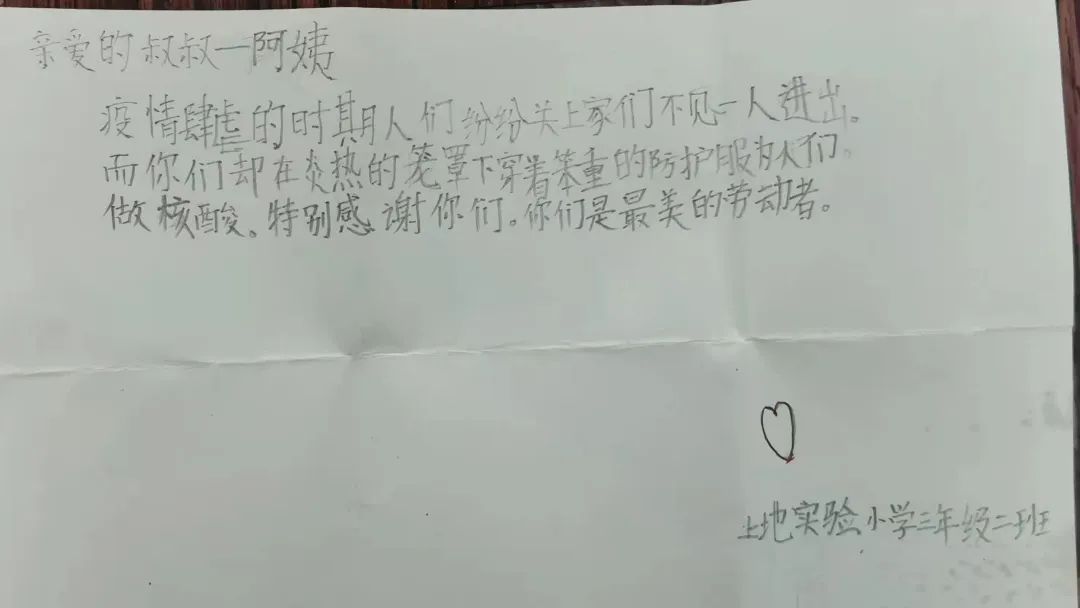 亲爱的叔叔一阿姨
疫情肆虐的时期人们纷纷关上家们不见一人进出。
而你们却在炎热的笼罩下穿着笨重的防护服为人们。
做核酸。特别感谢你们。你们是最美的劳动者。
上地实验小学三年级二班